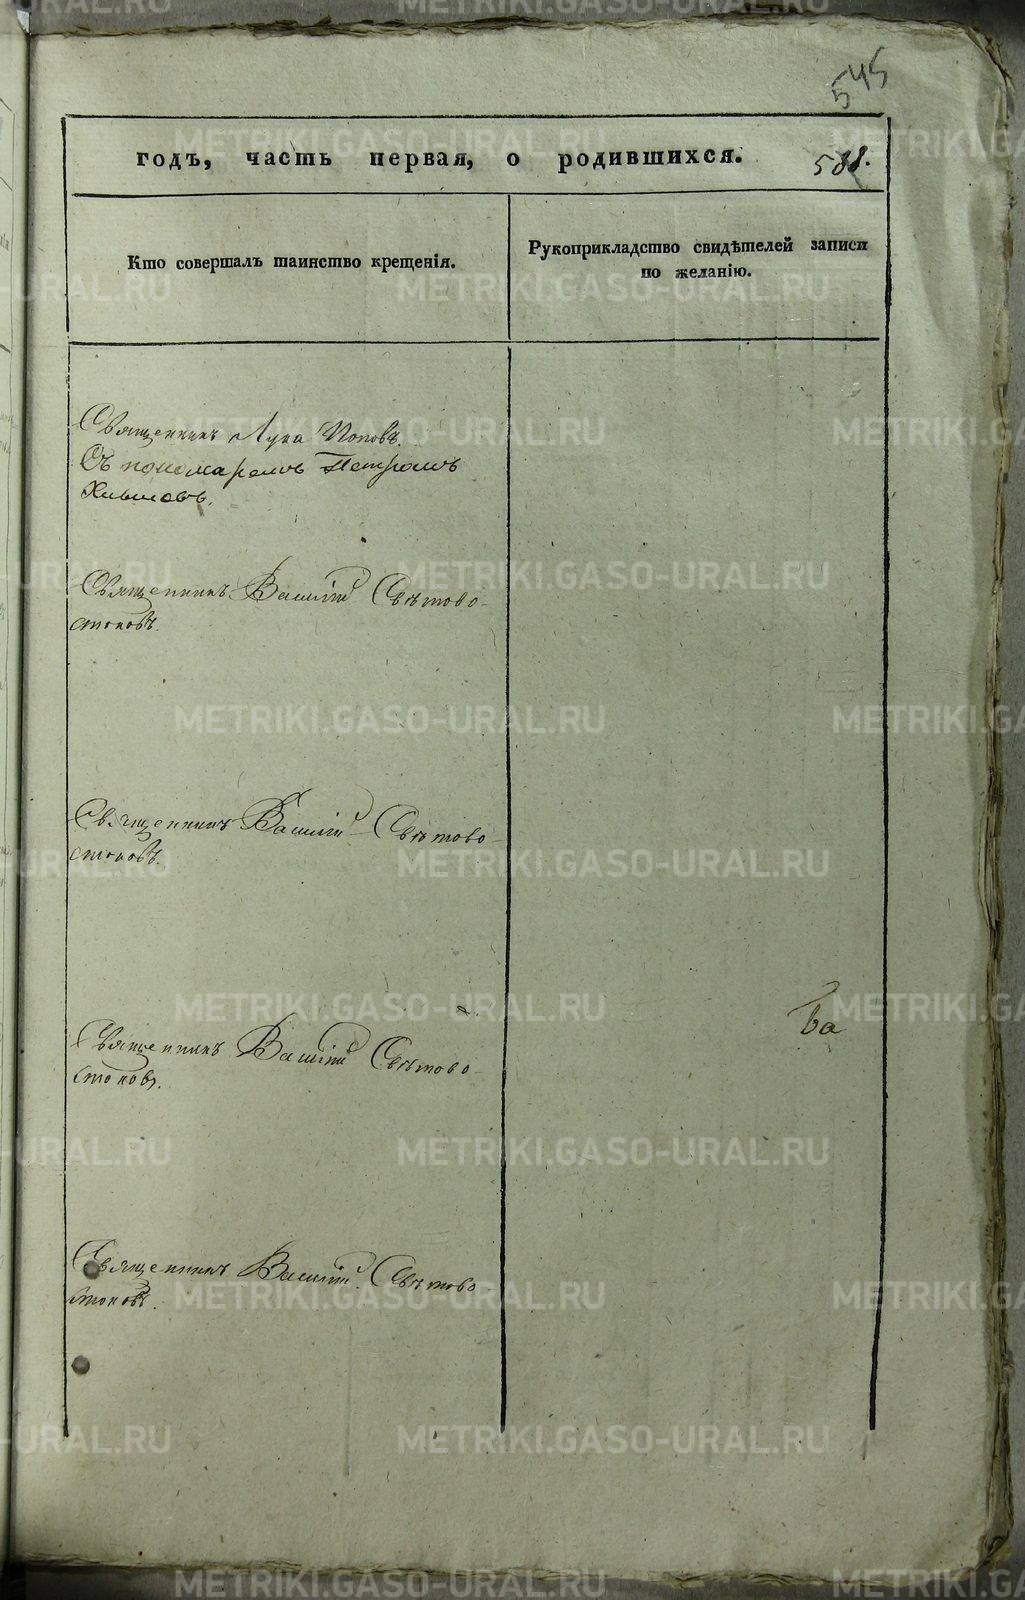 545
годъ, часть первая, о родившихся.
Кто совершалъ таинство крещенія.
Рукоприкладство свидѣтелей записи
по желанію.
Священникъ Лука Поповъ.
Съ пономаремъ Петромъ
Священникъ Василій Свѣтово-
стоковъ.
Священникъ Василій Свѣтово-
стоковъ.
ва
Священникъ Василій Свѣтово-
стоковъ.
Священникъ Василій Свѣтово
стоковъ.
METRIKI.GASO-URAL.RU